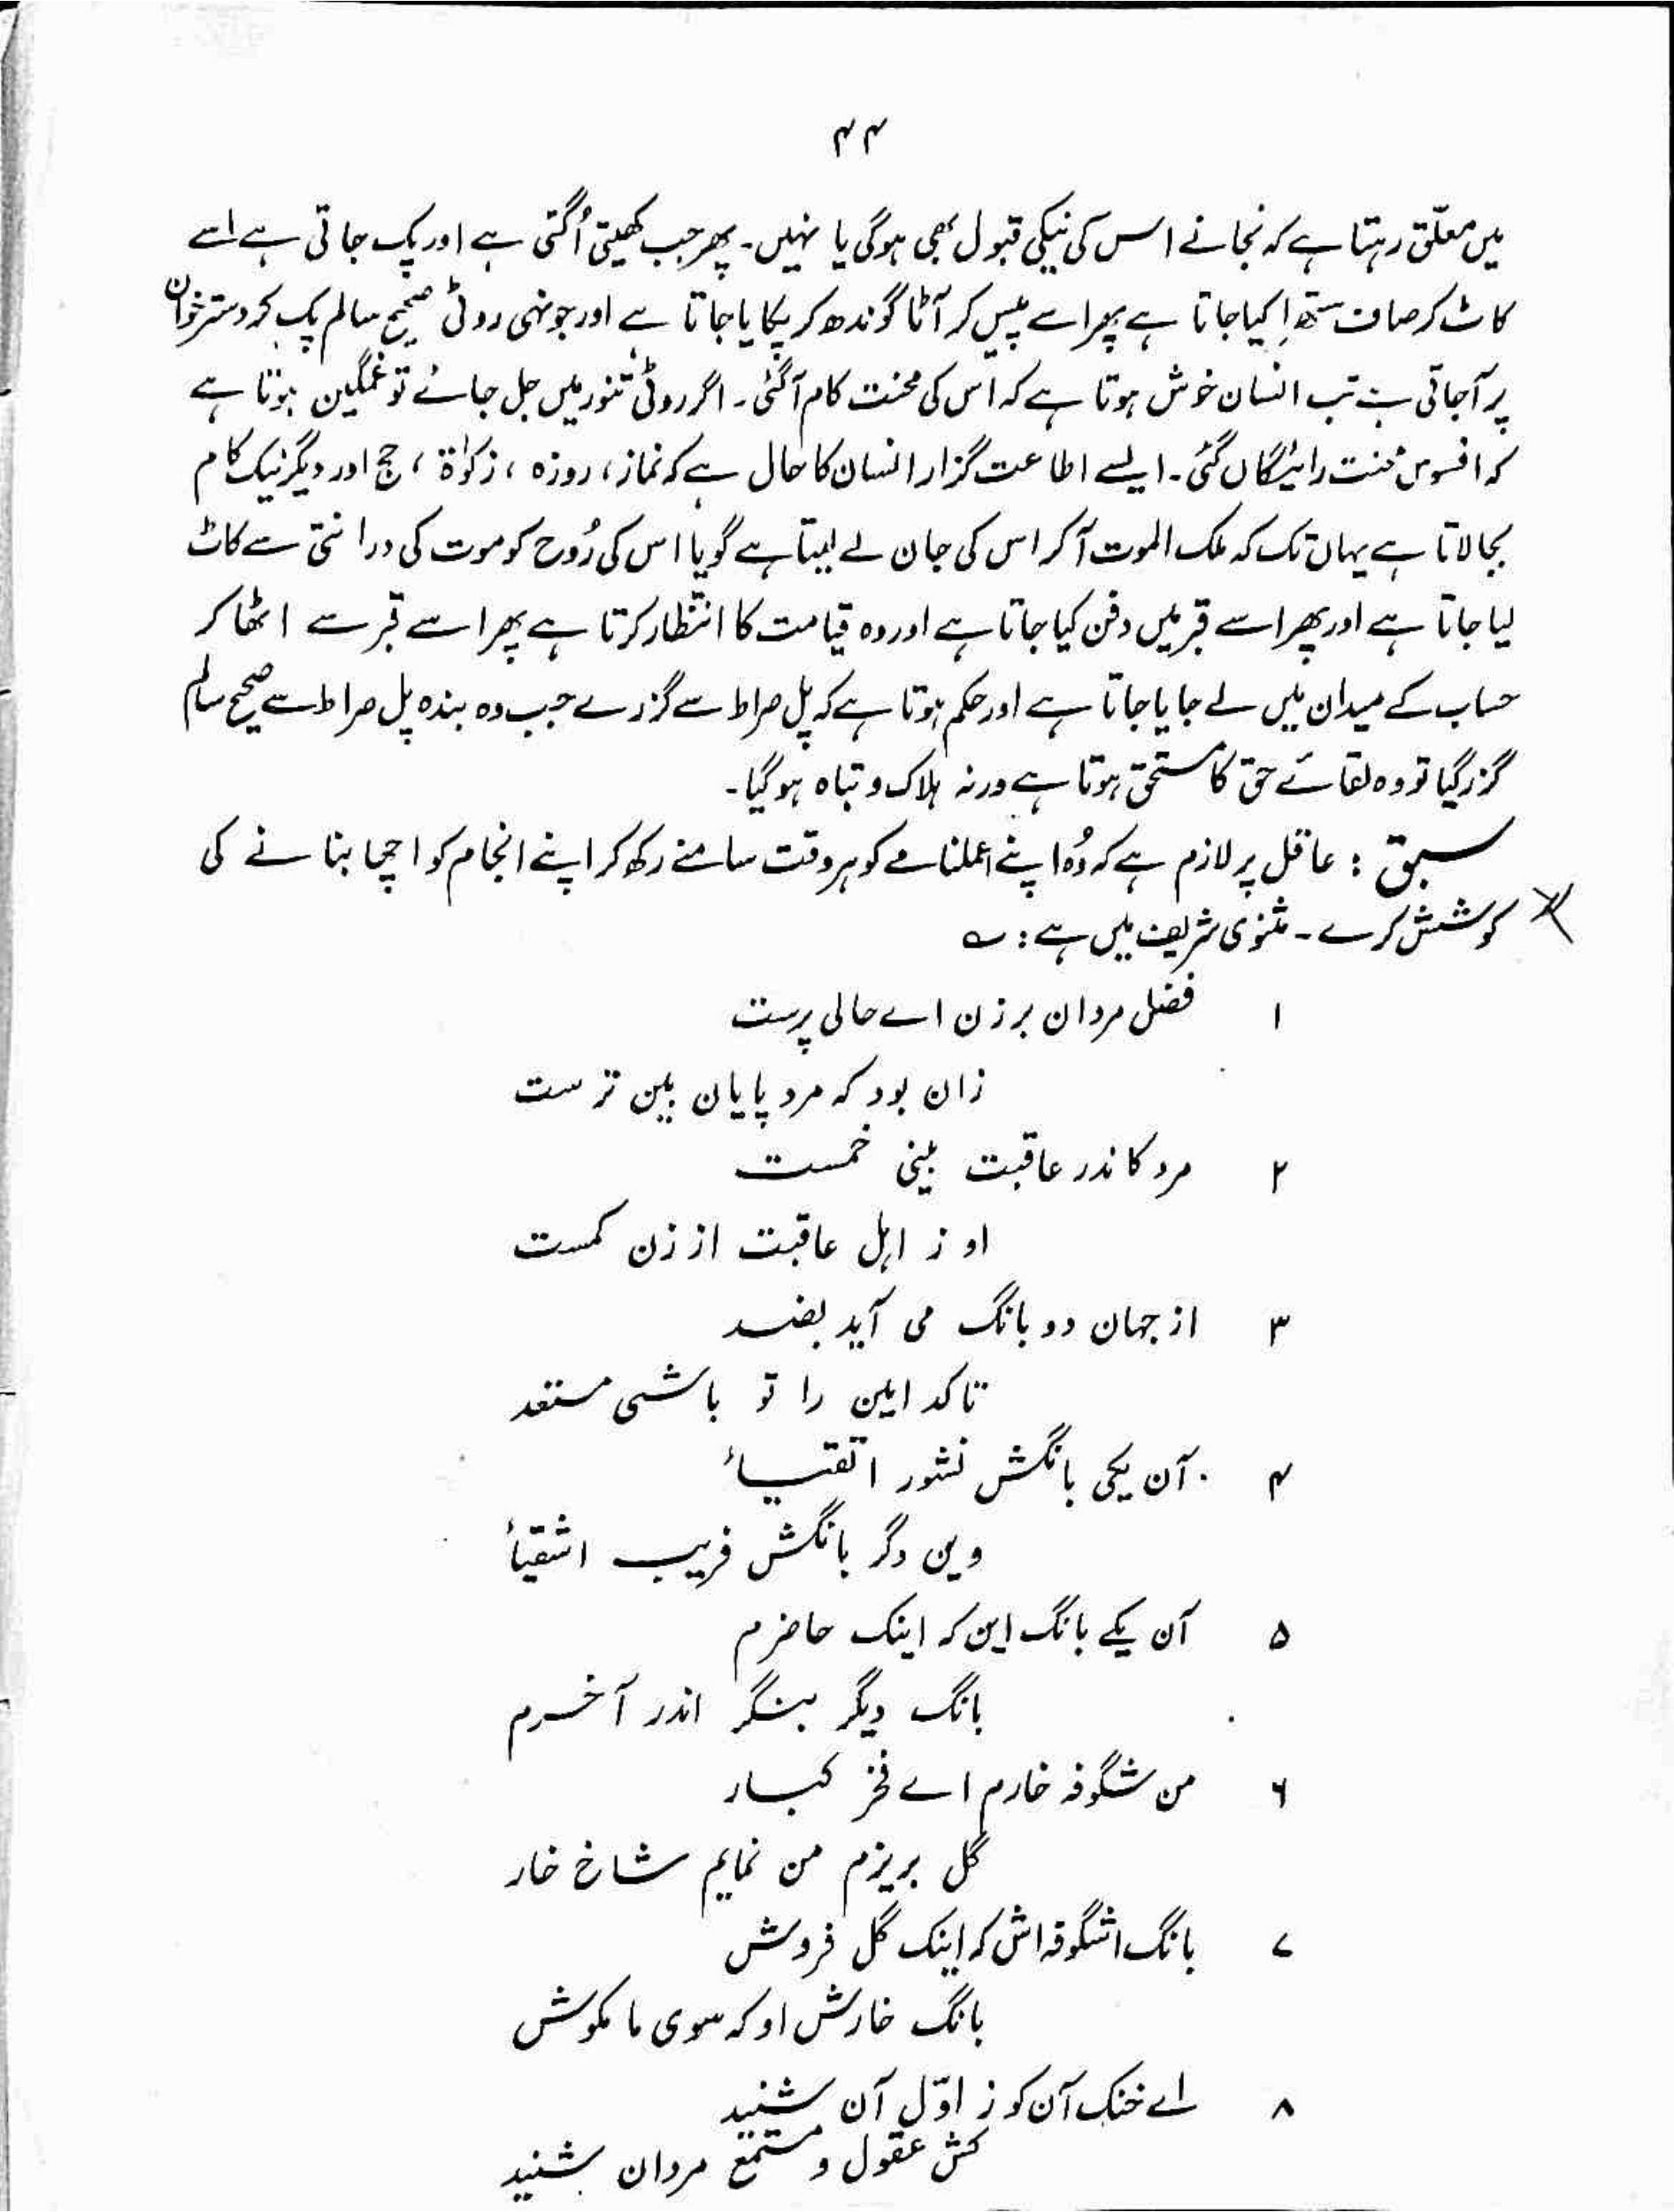 ۴۴
میں معلّق رہتا ہے کہ نجانے اس کی نیکی قبول بھی ہوگی یا نہیں۔ پھر جب کھیتی اُگتی ہے اور پک جاتی ہے اسے
کاٹ کر صاف ستھرا کیا جاتا ہے پھر اسے پیس کر آٹا گوندھ کر پکایا جاتا ہے اور جونہی روٹی صحیح سالم پک کر دسترخوان
پر آجاتی ہے تب انسان خوش ہوتا ہے کہ اس کی محنت کام آگئی۔ اگر روٹی تنور میں جل جائے تو غمگین ہوتا ہے
کہ افسوس محنت رائیگاں گئی۔ ایسے اطاعت گزار انسان کا حال ہے کہ نماز، روزہ، زکوٰۃ، حج اور دیگر نیک کام
بجا لاتا ہے یہاں تک کہ ملک الموت آکر اس کی جان لے لیتا ہے گویا اس کی رُوح کو موت کی درانتی سے کاٹ
لیا جاتا ہے اور پھر اسے قبر میں دفن کیا جاتا ہے اور وہ قیامت کا انتظار کرتا ہے پھر اسے قبر سے اٹھا کر
حساب کے میدان میں لے جایا جاتا ہے اور حکم ہوتا ہے کہ پل صراط سے گزرے جب وہ بندہ پل صراط سے صحیح سالم
گزر گیا تو وہ لقائے حق کا مستحق ہوتا ہے ورنہ ہلاک و تباہ ہوگیا۔
سبق : عاقل پر لازم ہے کہ وُہ اپنے اعملنامے کو ہر وقت سامنے رکھ کر اپنے انجام کو اچھا بنانے کی
کوشش کرے۔ مثنوی شریف میں ہے : ؎
۱ فضل مردان بر زن اے حالی پرست
زان بود کہ مرد پایان بین ترست
۲ مرد کاندر عاقبت بینی خمست
او ز اہل عاقبت از زن کمست
۳ از جہان دو بانگ می آید بضد
تا کدامین را تو باشی مستعد
۴ آن یکی بانگش نشور اتقیاء
وین دگر بانگش فریب اشقیاء
۵ آن یکے بانگ این کہ اینک حاضرم
بانگ دیگر بنگر اندر آخرم
۶ من شگوفہ خارم اے فخر کبار
گل بریزم من نمایم شاخ خار
۷ بانگ اشگوفہ اش کہ اینک گل فروش
بانگ خارش او کہ سوی ما مکوش
۸ اے خنک آن کو ز اوّل آن شنید
کش عقول و مستمع مردان شنید